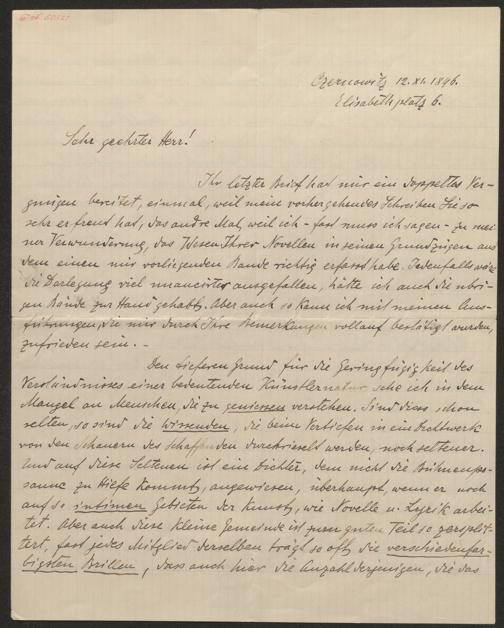 Czernowitz 12.XI.1896.
Elisabethplatz 6.
Sehr geehrter Herr!
Ihr letzter Brief hat mir ein doppeltes Ver-
gnügen bereitet, einmal, weil mein vorhergehendes Schreiben Sie so
sehr erfreut hat, das andre Mal, weil ich - fast muss ich sagen - zu mei-
ner Verwunderung, das Wesen Ihrer Novellen in seinen Grundzügen aus
dem einen mir vorliegenden Bande richtig erfasst habe. Jedenfalls wär
die Darlegung viel nuancirter ausgefallen, hätte ich auch die übri-
gen Bände zur Hand gehabt. Aber auch so kann ich mit meinen Aus-
führungen, die mir durch Ihre Bemerkungen vollauf bestätigt wurden,
zufrieden sein. -
Den tieferen Grund für die Geringfügigkeit des
Verständnisses einer bedeutenden Künstlernatur sehe ich in dem
Mangel an Menschen, die zu geniessen verstehen. Sind diese schon
selten, so sind die wissenden, die beim Vertiefen in ein Dichtwerk
von den Schauern des Schaffenden durchrieselt werden, noch seltener.
Und auf diese Seltenen ist ein Dichter, dem nicht die Bühnenpo-
saune zu Hilfe kommt, angewiesen, überhaupt, wenn er noch
auf so intimen Gebieten der Kunst, wie Novelle u. Lyrik arbei-
tet. Aber auch diese kleine Gemeinde ist zum guten Teil so zersplit-
tert, fast jedes Mitglied derselben trägt so oft die verschiedenfar-
bigsten Brillen, dass auch hier die Anzahl derjenigen, die das